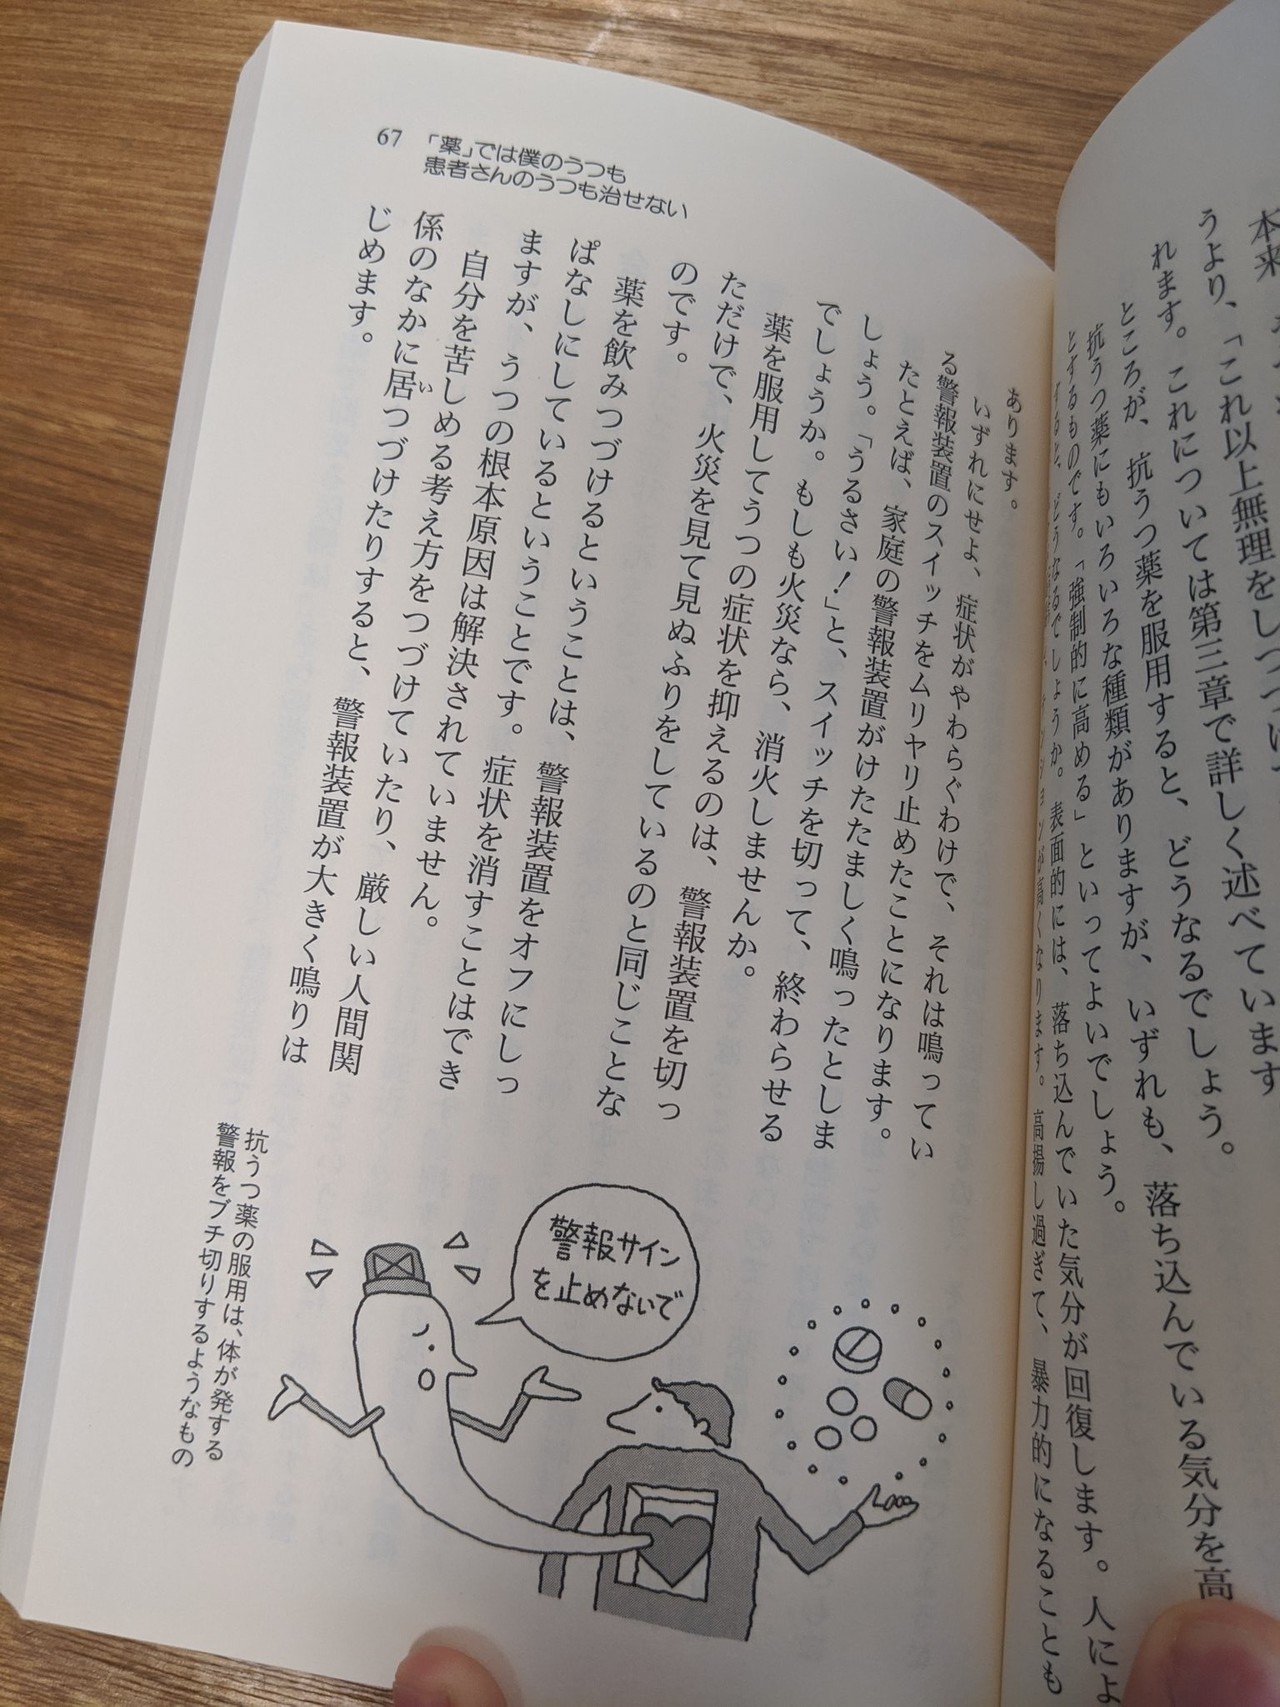 本来
うより、「これ以上無理をしつづけ
れます。これについては第三章で詳しく述べています
ところが、抗うつ薬を服用すると、どうなるでしょう。
抗うつ薬にもいろいろな種類がありますが、いずれも、落ち込んでいる気分を高
とするものです。「強制的に高める」といってよいでしょう。
すると、どうなるでしょうか。表面的には、落ち込んでいた気分が回復します。人によ
ンが高くなります。高揚し過ぎて、暴力的になることも
67
「薬」では僕のうつも
患者さんのうつも治せない
あります。
いずれにせよ、症状がやわらぐわけで、それは鳴ってい
る警報装置のスイッチをムリヤリ止めたことになります。
たとえば、家庭の警報装置がけたたましく鳴ったとしま
しょう。「うるさい！」と、スイッチを切って、終わらせる
でしょうか。もしも火災なら、消火しませんか。
薬を服用してうつの症状を抑えるのは、警報装置を切っ
ただけで、火災を見て見ぬふりをしているのと同じことな
のです。
薬を飲みつづけるということは、警報装置をオフにしっ
ぱなしにしているということです。症状を消すことはでき
ますが、うつの根本原因は解決されていません。
自分を苦しめる考え方をつづけていたり、厳しい人間関
係のなかに居つづけたりすると、警報装置が大きく鳴りは
い
じめます。
警報サイン
を止めないで
抗うつ薬の服用は、体が発する
警報をブチ切りするようなもの